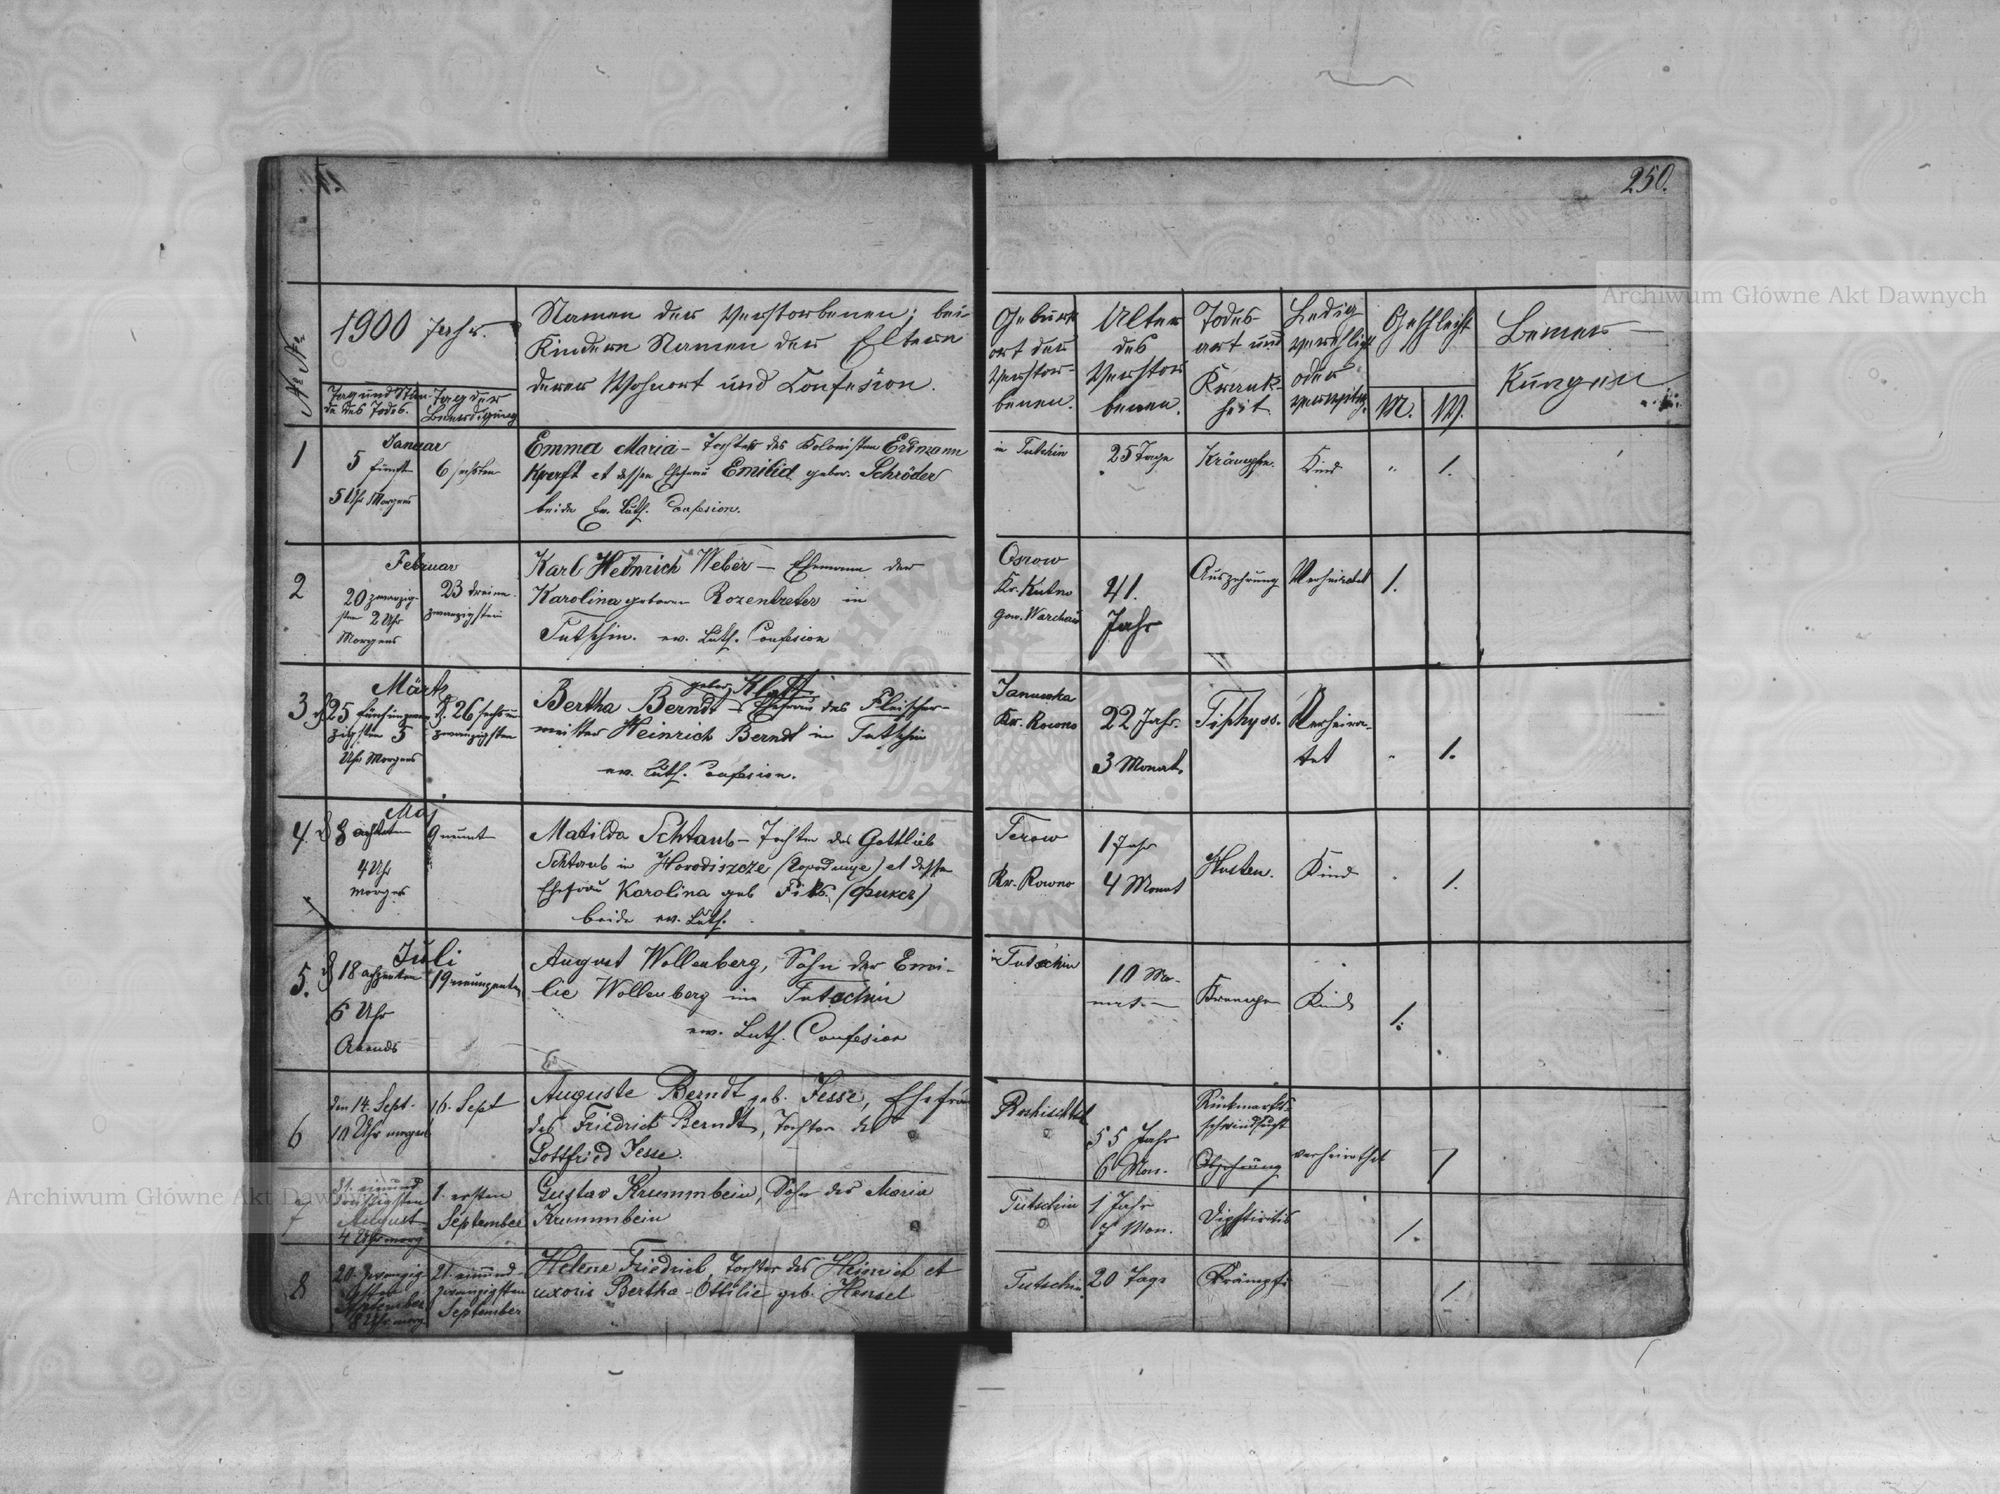 250.
Archiwum Główne Akt Dawnych
No No
1900 Jahr.
Tag und Stun-
de des Todes.
Tag der
Beerdigung
Namen der Verstorbenen; bei
Kindern Namen der Eltern
deren Wohnort und Confesion.
Geburt
ort der
Verstor-
benen.
Alter
des
Verstor
benen.
Todes
art und
Krank-
heit
Ledig
verehligt
oder
Geschlecht
M.
W.
Bemer-
kungen
1
Januar
5 fünft
5 Uhr Morgens
6 sechsten
Emma Maria - Tochter des Kolonisten Erdmann
Kraft et dessen Ehefrau Emilia gebor. Schröder
beide Ev. Luth. Confesion.
in Tutschin
25 Tage
Krämpfe.
Kind
"
1.
2
Februar
20 zwanzig-
sten 2 Uhr
Morgens
23 dreiund-
zwanzigsten
Karl Heinrich Weber - Ehemann der
Karolina geboren Rozentreter in
Tutschin. ev. Luth. Confesion
Osrow
Kr. Kutno
Gow. Warchau
41.
Jahr
Auszehrung
Verheiratet
1.
3
Märtz
25 fünfundzwan
zigsten 5
Uhr Morgens
d. 26 sechsun
zwanzigsten
gebor. Klatt
Bertha Berndt - Ehefrau des Fleischer-
meister Heinrich Berndt in Tutschin
ev. Luth. Confesion.
Januwka
Kr. Rowno
22 Jahr.
3 Monat
Tiphyss.
Verheira-
tet
1.
4.
Maj
8 achten
4 Uhr
Morges
9 neunt
Matilda Schtaub - Tochter des Gottlieb
Schtaub in Horodiszcze (Городище) et dessen
Ehefrau Karolina geb Fiks. (Фиксъ)
beide ev. Luth.
Terow
Kr. Rowno
1 Jahr
4 Monat
Husten.
Kind
1.
5.
Juli
18 achzenten
6 Uhr
Abends
19 neunzenten
August Wollenberg, Sohn der Emi-
lie Wollenberg in Tutschin
ev. Luth. Confesion
in Tutschin
10 Mo-
nat. -
Krempfe
Kind
1.
6
den 14. Sept.
10 Uhr morgens
16. Sept
Auguste Berndt geb. Jesse, Ehefrau
des Friedrich Berndt, Tochter des
Gottfried Jesse.
Roshischtsch
55 Jahr
6 Mon.
Rückmarks-
schwindsucht
verheirathet
1
7
31. einund
dreißigsten
August
4 Uhr morg
1. ersten
September
Gustav Krummbein, Sohn der Maria
Krummbein
Tutschin
1 Jahr
7 Mon.
Diphtiritis
1.
8
20. Zwanzig-
sten
September
8 Uhr morg
21. einund-
zwanzigsten
September
Helene Friedrich, Tochter des Heinrich et
uxoris Bertha-Ottilie geb. Hensel
Tutschin
20 Tage
Krämpfe
1
Archiwum Główne Akt Dawnych